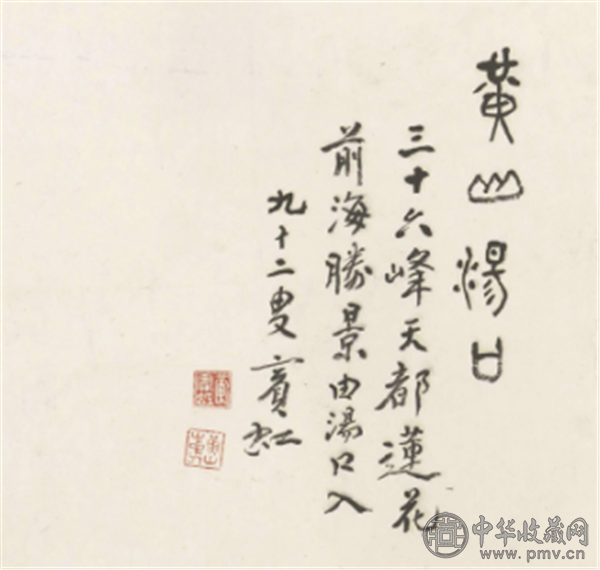 黄山湯口
三十六峰天都蓮花
前海勝景由湯口入
九十二叟賓虹
中华收藏网
www.pmv.cn